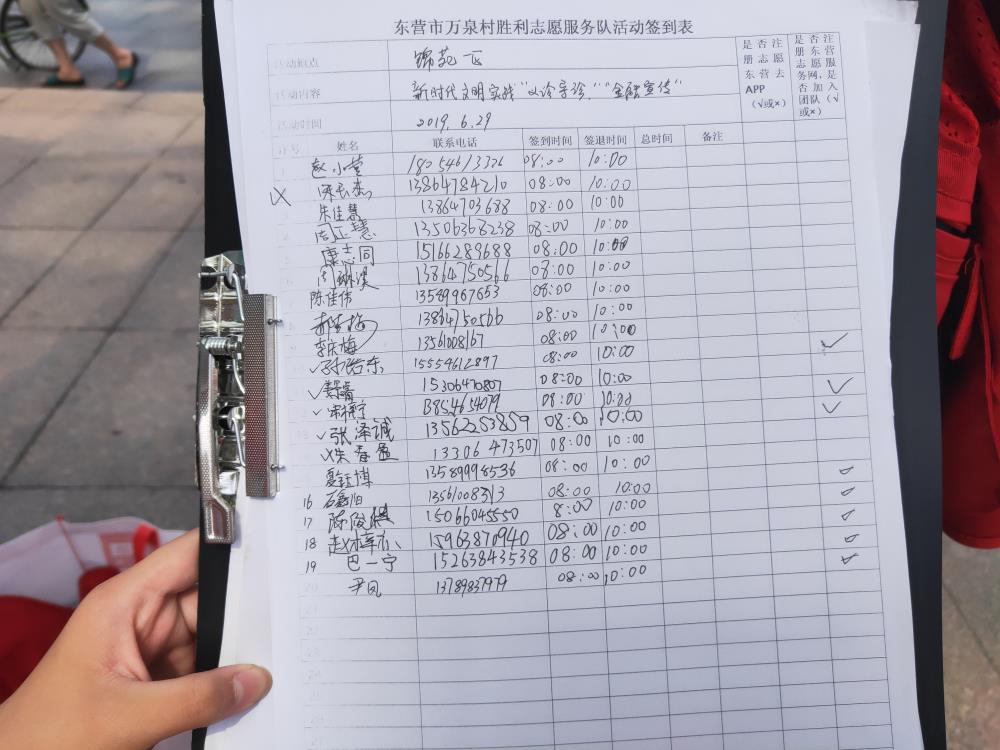 东营市万泉村胜利志愿服务队活动签到表
活动地点 锦苑一区 是否注册志愿东营去APP（√或×） 是否注册东营志愿服务网,是否加入团队（√或×）
活动内容 新时代文明实践"义诊导诊""金融宣传"
活动时间 2019.6.29
序号 姓名 联系电话 签到时间 签退时间 总时间 备注
赵小莹 18054613326 08:00 10:00
13864784210 08:00 10:00
朱佳慧 13864703688 08:00 10:00
13506368238 08:00 10:00
康志同 15166283688 08:00 10:00
13864750566 08:00 10:00
陈佳伟 13589967653 08:00 10:00
13864750566 08:00 10:00
李庆梅 13561008167 08:00 10:00 ✓
✓ 15554612897 08:00 10:00
✓ 15306470807 08:00 10:00 ✓
✓ 13854654079 08:00 10:00 ✓
✓张泽诚 13562253859 08:00 10:00
13306473507 08:00 10:00
13589998536 08:00 10:00 ✓
16 13561008313 08:00 10:00 ✓
17 陈俊 15066045550 8:00 10:00 ✓
18 15963870940 08:00 10:00 ✓
19 巴一宁 15263843538 08:00 10:00 ✓
20 尹凤 13789837979 08:00 10:00
21
22
23
24
25